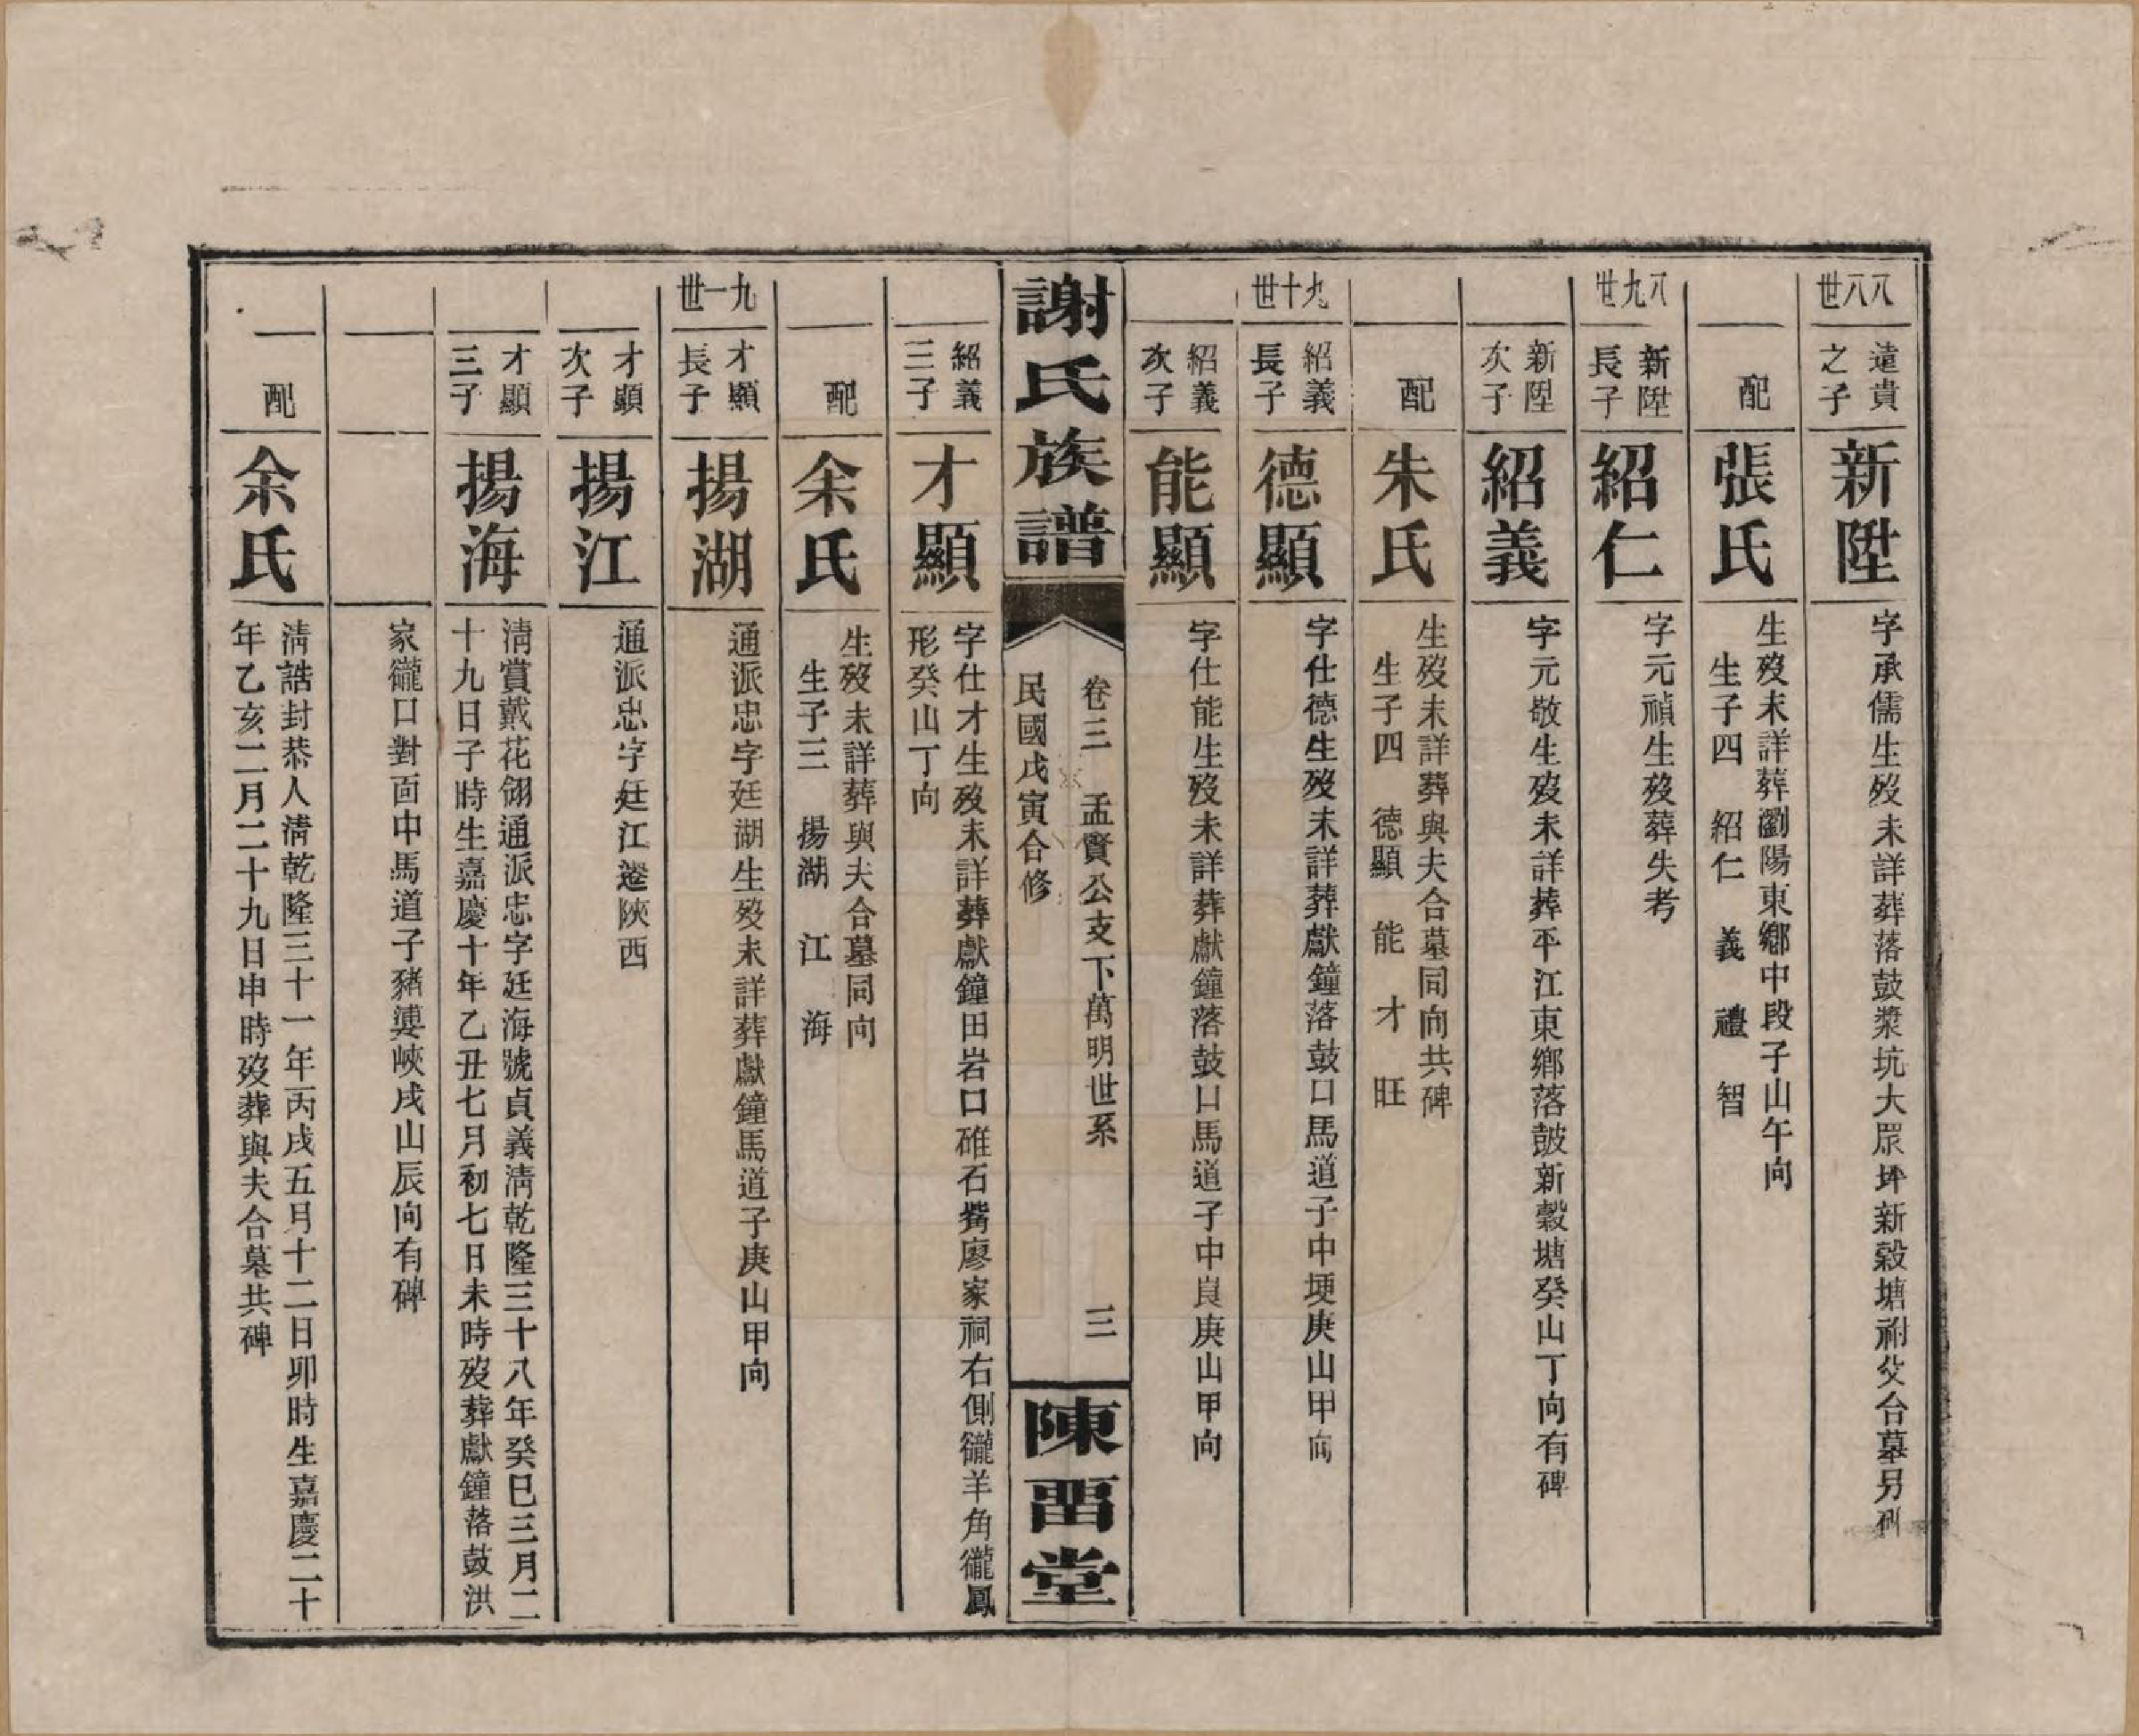 八八世
遠貴
之子
新陞
字承儒生歿未詳葬落鼓漿坑大眾坪新穀塘祔父合墓另碑
配
張氏
生歿未詳葬瀏陽東鄉中段子山午向
生子四　紹仁　義　禮　智
八九世
新陞
長子
紹仁
字元禎生歿葬失考
新陞
次子
紹義
字元敬生歿未詳葬平江東鄉落鼓新穀塘癸山丁向有碑
配
朱氏
生歿未詳葬與夫合墓同向共碑
生子四　德顯　能　才　旺
九十世
紹義
長子
德顯
字仕德生歿未詳葬獻鐘落鼓口馬道子中埂庚山甲向
紹義
次子
能顯
字仕能生歿未詳葬獻鐘落鼓口馬道子中艮庚山甲向
謝氏族譜
卷三　孟賢公支下萬明世系　三
民國戊寅合修
陳留堂
紹義
三子
才顯
字仕才生歿未詳葬獻鐘田岩口碓石觜廖家祠右側巃羊角巃鳳
形癸山丁向
配
余氏
生歿未詳葬與夫合墓同向
生子三　揚湖　江　海
九一世
才顯
長子
揚湖
通派忠字廷湖生歿未詳葬獻鐘馬道子庚山甲向
才顯
次子
揚江
通派忠字廷江遷陝西
才顯
三子
揚海
清賞戴花翎通派忠字廷海號貞義清乾隆三十八年癸巳三月二
十九日子時生嘉慶十年乙丑七月初七日未時歿葬獻鐘落鼓洪
家巃口對面中馬道子豬婆峽戌山辰向有碑
配
余氏
清誥封恭人清乾隆三十一年丙戌五月十二日卯時生嘉慶二十
年乙亥二月二十九日申時歿葬與夫合墓共碑